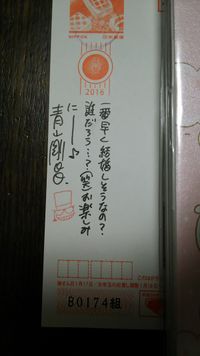 NIPPON
日本郵便
2016
一番早く結婚しそうなの?
誰だろう…?(笑)お楽しみ
に——♪
青山剛昌
B0174組